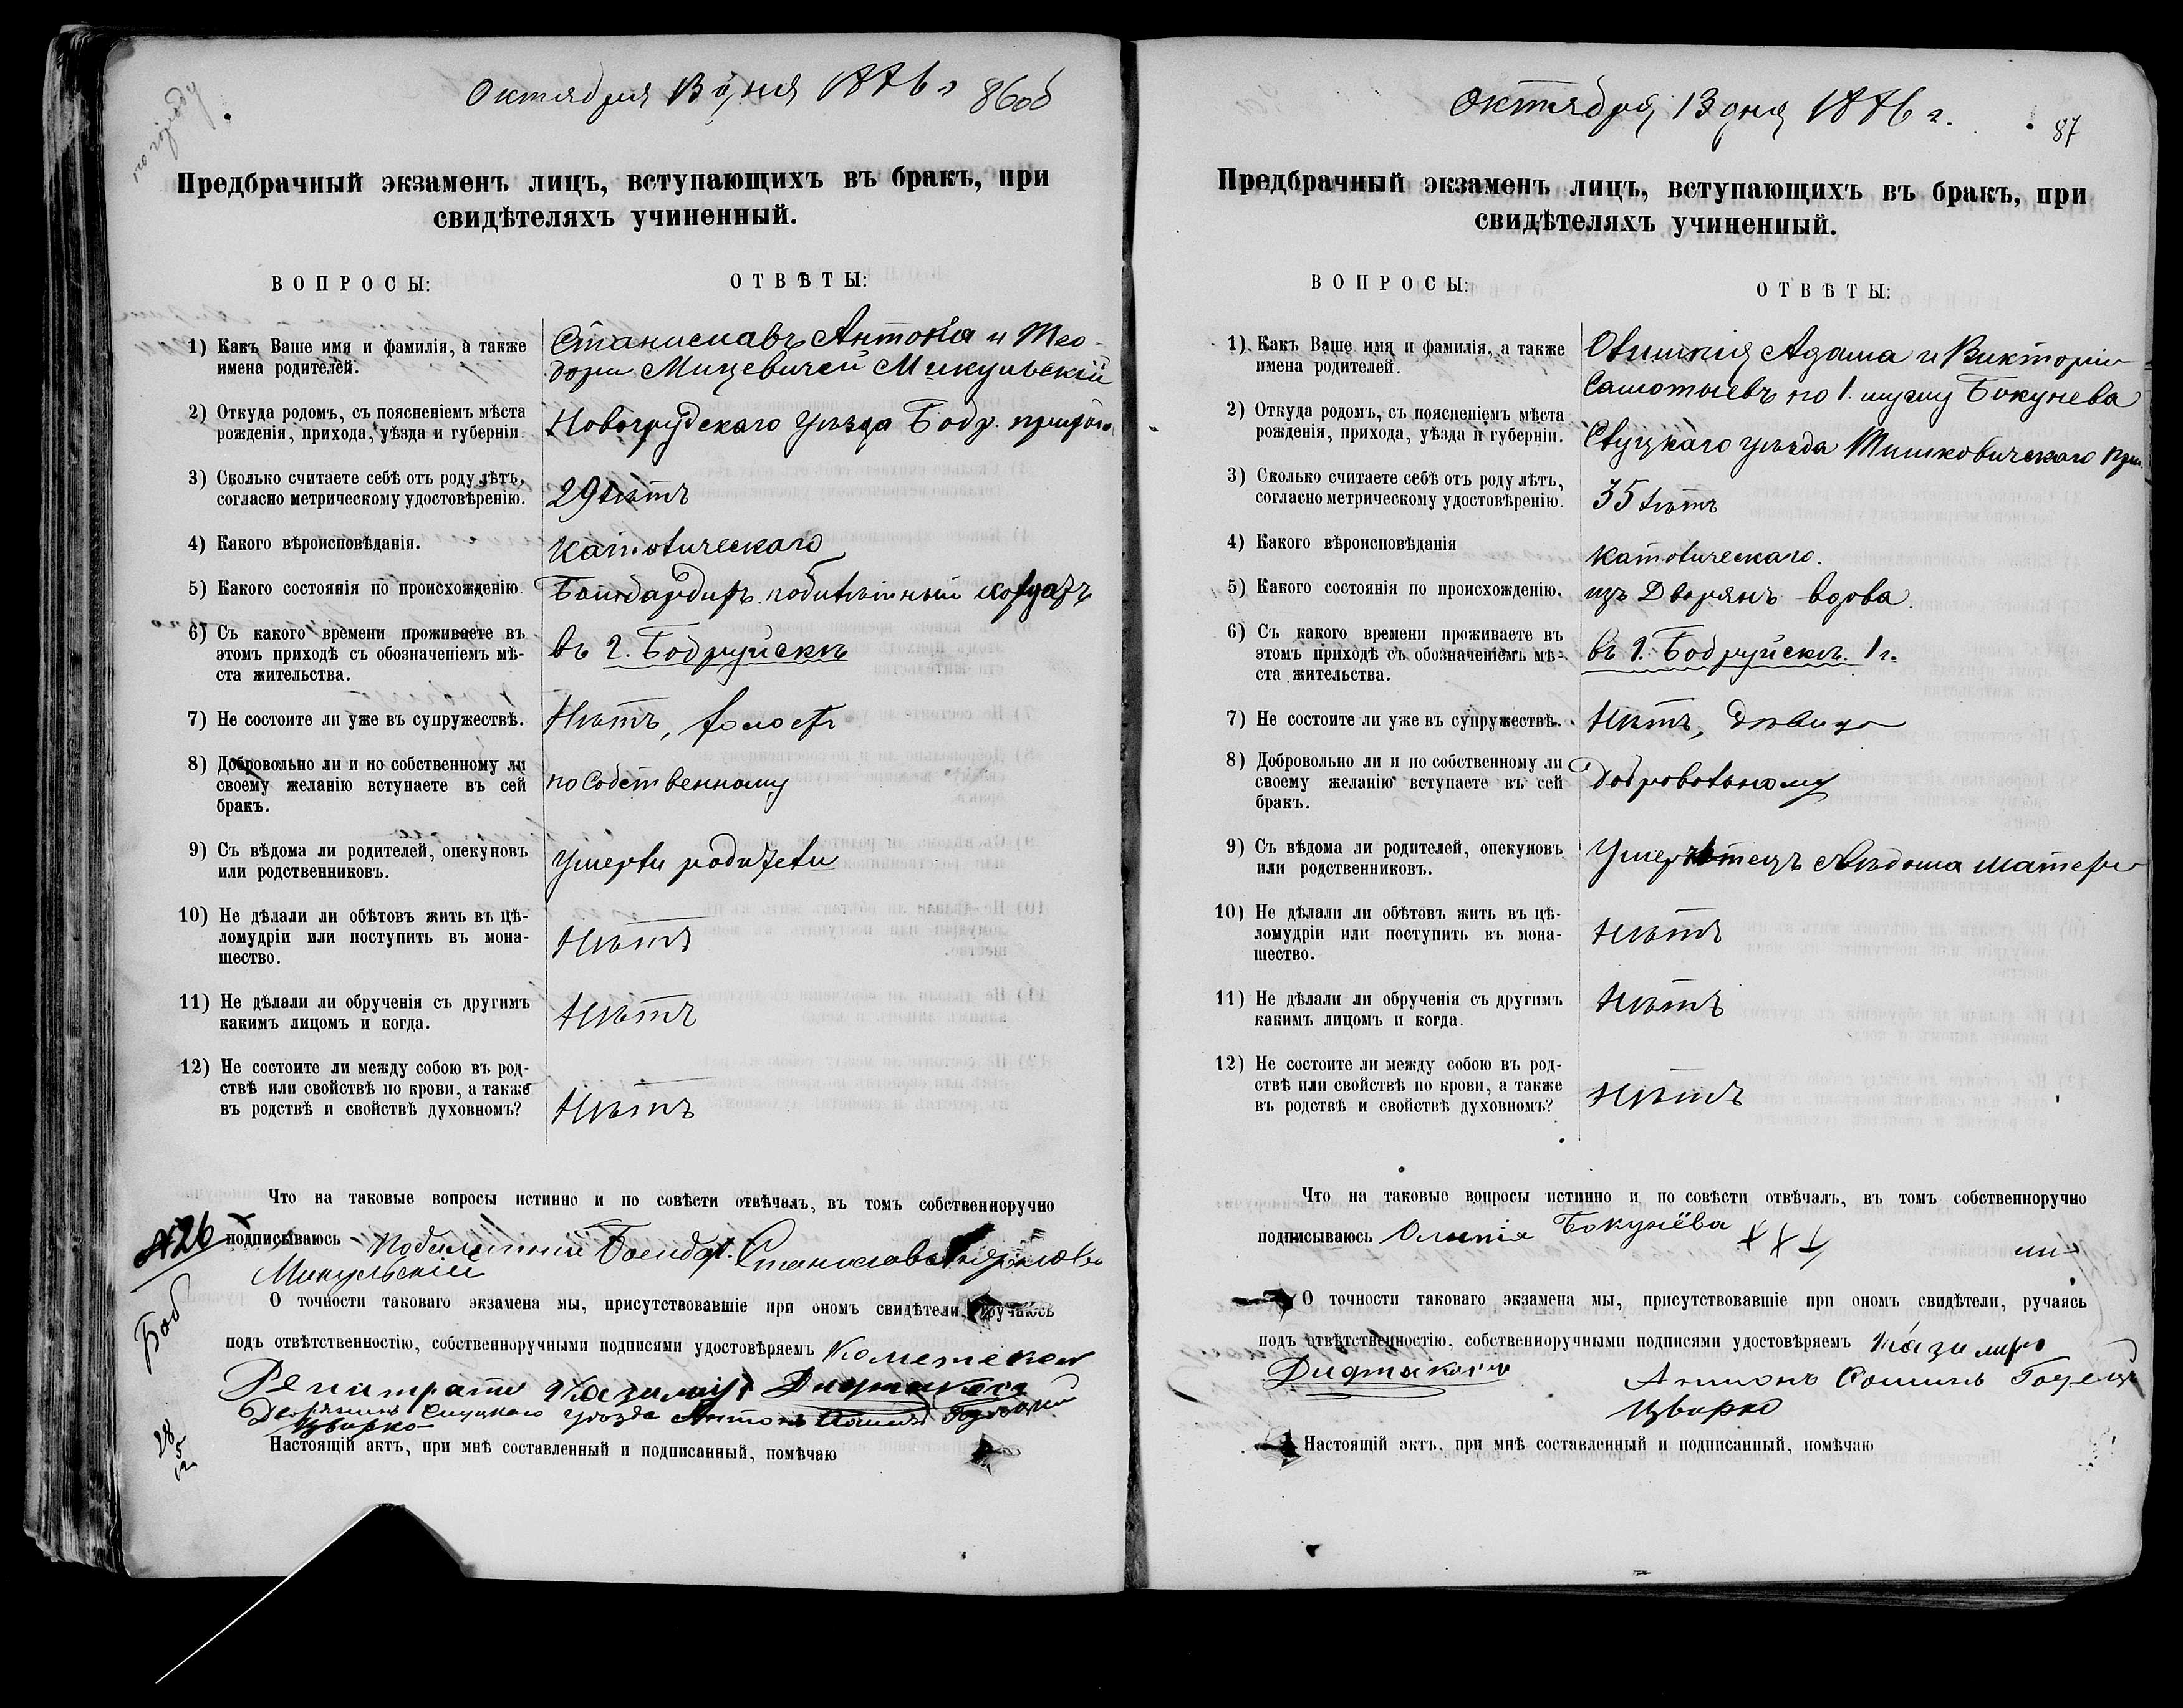 по городу
Октября 13 дня 1876 г 86об
Предбрачный экзаменъ лицъ, вступающихъ въ бракъ, при
свидѣтеляхъ учиненный.
ВОПРОСЫ: ОТВѢТЫ:
1) Какъ Ваше имя и фамилія, а также
имена родителей.
Станиславъ Антона и Тео-
дори Мицевичей Микульскій
2) Откуда родомъ, съ поясненіемъ мѣста
рожденія, прихода, уѣзда и губерніи
Новогрудскаго уѣзда Бобр.
3) Сколько считаете себѣ отъ роду лѣтъ,
согласно метрическому удостовѣренію.
29 лѣтъ
4) Какого вѣроисповѣданія.
католическаго
5) Какого состоянія по происхожденію.
Бомбардиръ. солдатъ
6) Съ какого времени проживаете въ
этомъ приходѣ съ обозначеніемъ мѣ-
ста жительства.
въ г. Бобруйскѣ
7) Не состоите ли уже въ супружествѣ.
Нѣтъ, холостъ
8) Добровольно ли и по собственному ли
своему желанію вступаете въ сей
бракъ.
по Собственному
9) Съ вѣдома ли родителей, опекуновъ
или родственниковъ.
Умерли родители
10) Не дѣлали ли обѣтовъ жить въ цѣ-
ломудріи или поступить въ мона-
шество.
Нѣтъ
11) Не дѣлали ли обрученія съ другимъ
какимъ лицомъ и когда.
Нѣтъ
12) Не состоите ли между собою въ род-
ствѣ или свойствѣ по крови, а также
въ родствѣ и свойствѣ духовномъ?
Нѣтъ
Что на таковые вопросы истинно и по совѣсти отвѣчалъ, въ томъ собственноручно
№26
подписываюсь Станиславъ
Микульскій
Боб
О точности таковаго экзамена мы, присутствовавшіе при ономъ свидѣтели, ручаясь
подъ отвѣтственностію, собственноручными подписями удостовѣряемъ
Казимиръ
Дворянинъ Слуцкаго уѣзда Антонъ
Цвирко
Настоящій актъ, при мнѣ составленный и подписанный, помѣчаю
Октября 13 дня 1876 г. 87
Предбрачный экзаменъ лицъ, вступающихъ въ бракъ, при
свидѣтеляхъ учиненный.
ВОПРОСЫ: ОТВѢТЫ:
1) Какъ Ваше имя и фамилія, а также
имена родителей.
Адама и Викторіи
по 1. мужу Бокунева
2) Откуда родомъ, съ поясненіемъ мѣста
рожденія, прихода, уѣзда и губерніи.
Слуцкаго уѣзда Тимковичскаго при.
3) Сколько считаете себѣ отъ роду лѣтъ,
согласно метрическому удостовѣренію.
35 лѣтъ
4) Какого вѣроисповѣданія
католическаго.
5) Какого состоянія по происхожденію.
изъ Дворянъ вдова.
6) Съ какого времени проживаете въ
этомъ приходѣ съ обозначеніемъ мѣ-
ста жительства.
въ г. Бобруйскѣ. 1 г.
7) Не состоите ли уже въ супружествѣ.
Нѣтъ, дѣвица
8) Добровольно ли и по собственному ли
своему желанію вступаете въ сей
бракъ.
Добровольному
9) Съ вѣдома ли родителей, опекуновъ
или родственниковъ.
Умеръ отецъ матери
10) Не дѣлали ли обѣтовъ жить въ цѣ-
ломудріи или поступить въ мона-
шество.
Нѣтъ
11) Не дѣлали ли обрученія съ другимъ
какимъ лицомъ и когда.
Нѣтъ
12) Не состоите ли между собою въ род-
ствѣ или свойствѣ по крови, а также
въ родствѣ и свойствѣ духовномъ?
Нѣтъ
Что на таковые вопросы истинно и по совѣсти отвѣчалъ, въ томъ собственноручно
подписываюсь Бокунёва ххх
О точности таковаго экзамена мы, присутствовавшіе при ономъ свидѣтели, ручаясь
подъ отвѣтственностію, собственноручными подписями удостовѣряемъ Казимиръ
Антонъ
Цвирко
Настоящій актъ, при мнѣ составленный и подписанный, помѣчаю